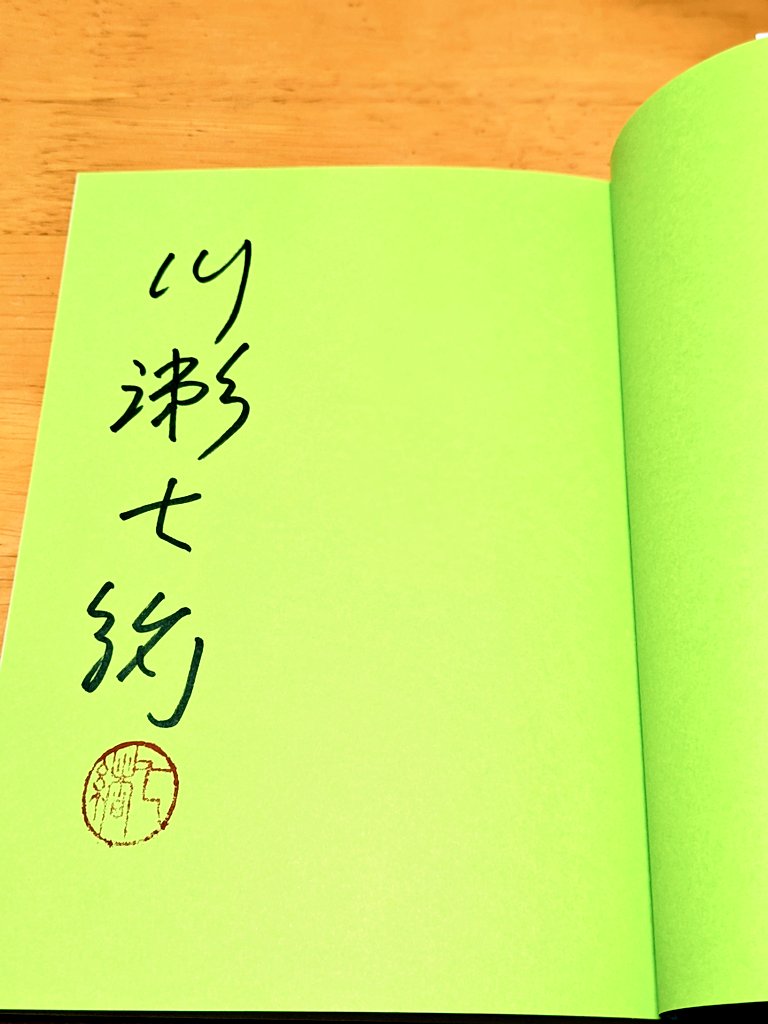 川瀬七緒
七緒